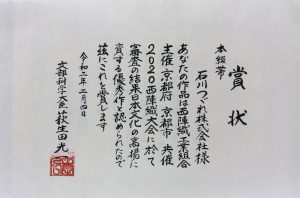 賞状
本綴帯
石川つづれ株式会社様
あなたの作品は西陣織工業組合
主催京都府京都市共催
2020西陣織大会に於て
審査の結果日本文化の高揚に
資する優秀作と認められたので
茲にこれを賞します
令和二年二月四日
文部科学大臣 萩生田光一